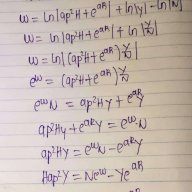 ω = ln|ap²H + eᵃᴿ| + ln|y| − ln|N|
ω = ln|ap²H + eᵃᴿ| + ln|y/N|
ω = ln|(ap²H + eᵃᴿ) y/N|
e^ω = (ap²H + eᵃᴿ) y/N
e^ω N = ap²Hy + eᵃᴿy
ap²Hy + eᵃᴿy = e^ω N
ap²Hy = e^ω N − eᵃᴿy
Hap²y = Ne^ω − yeᵃᴿ